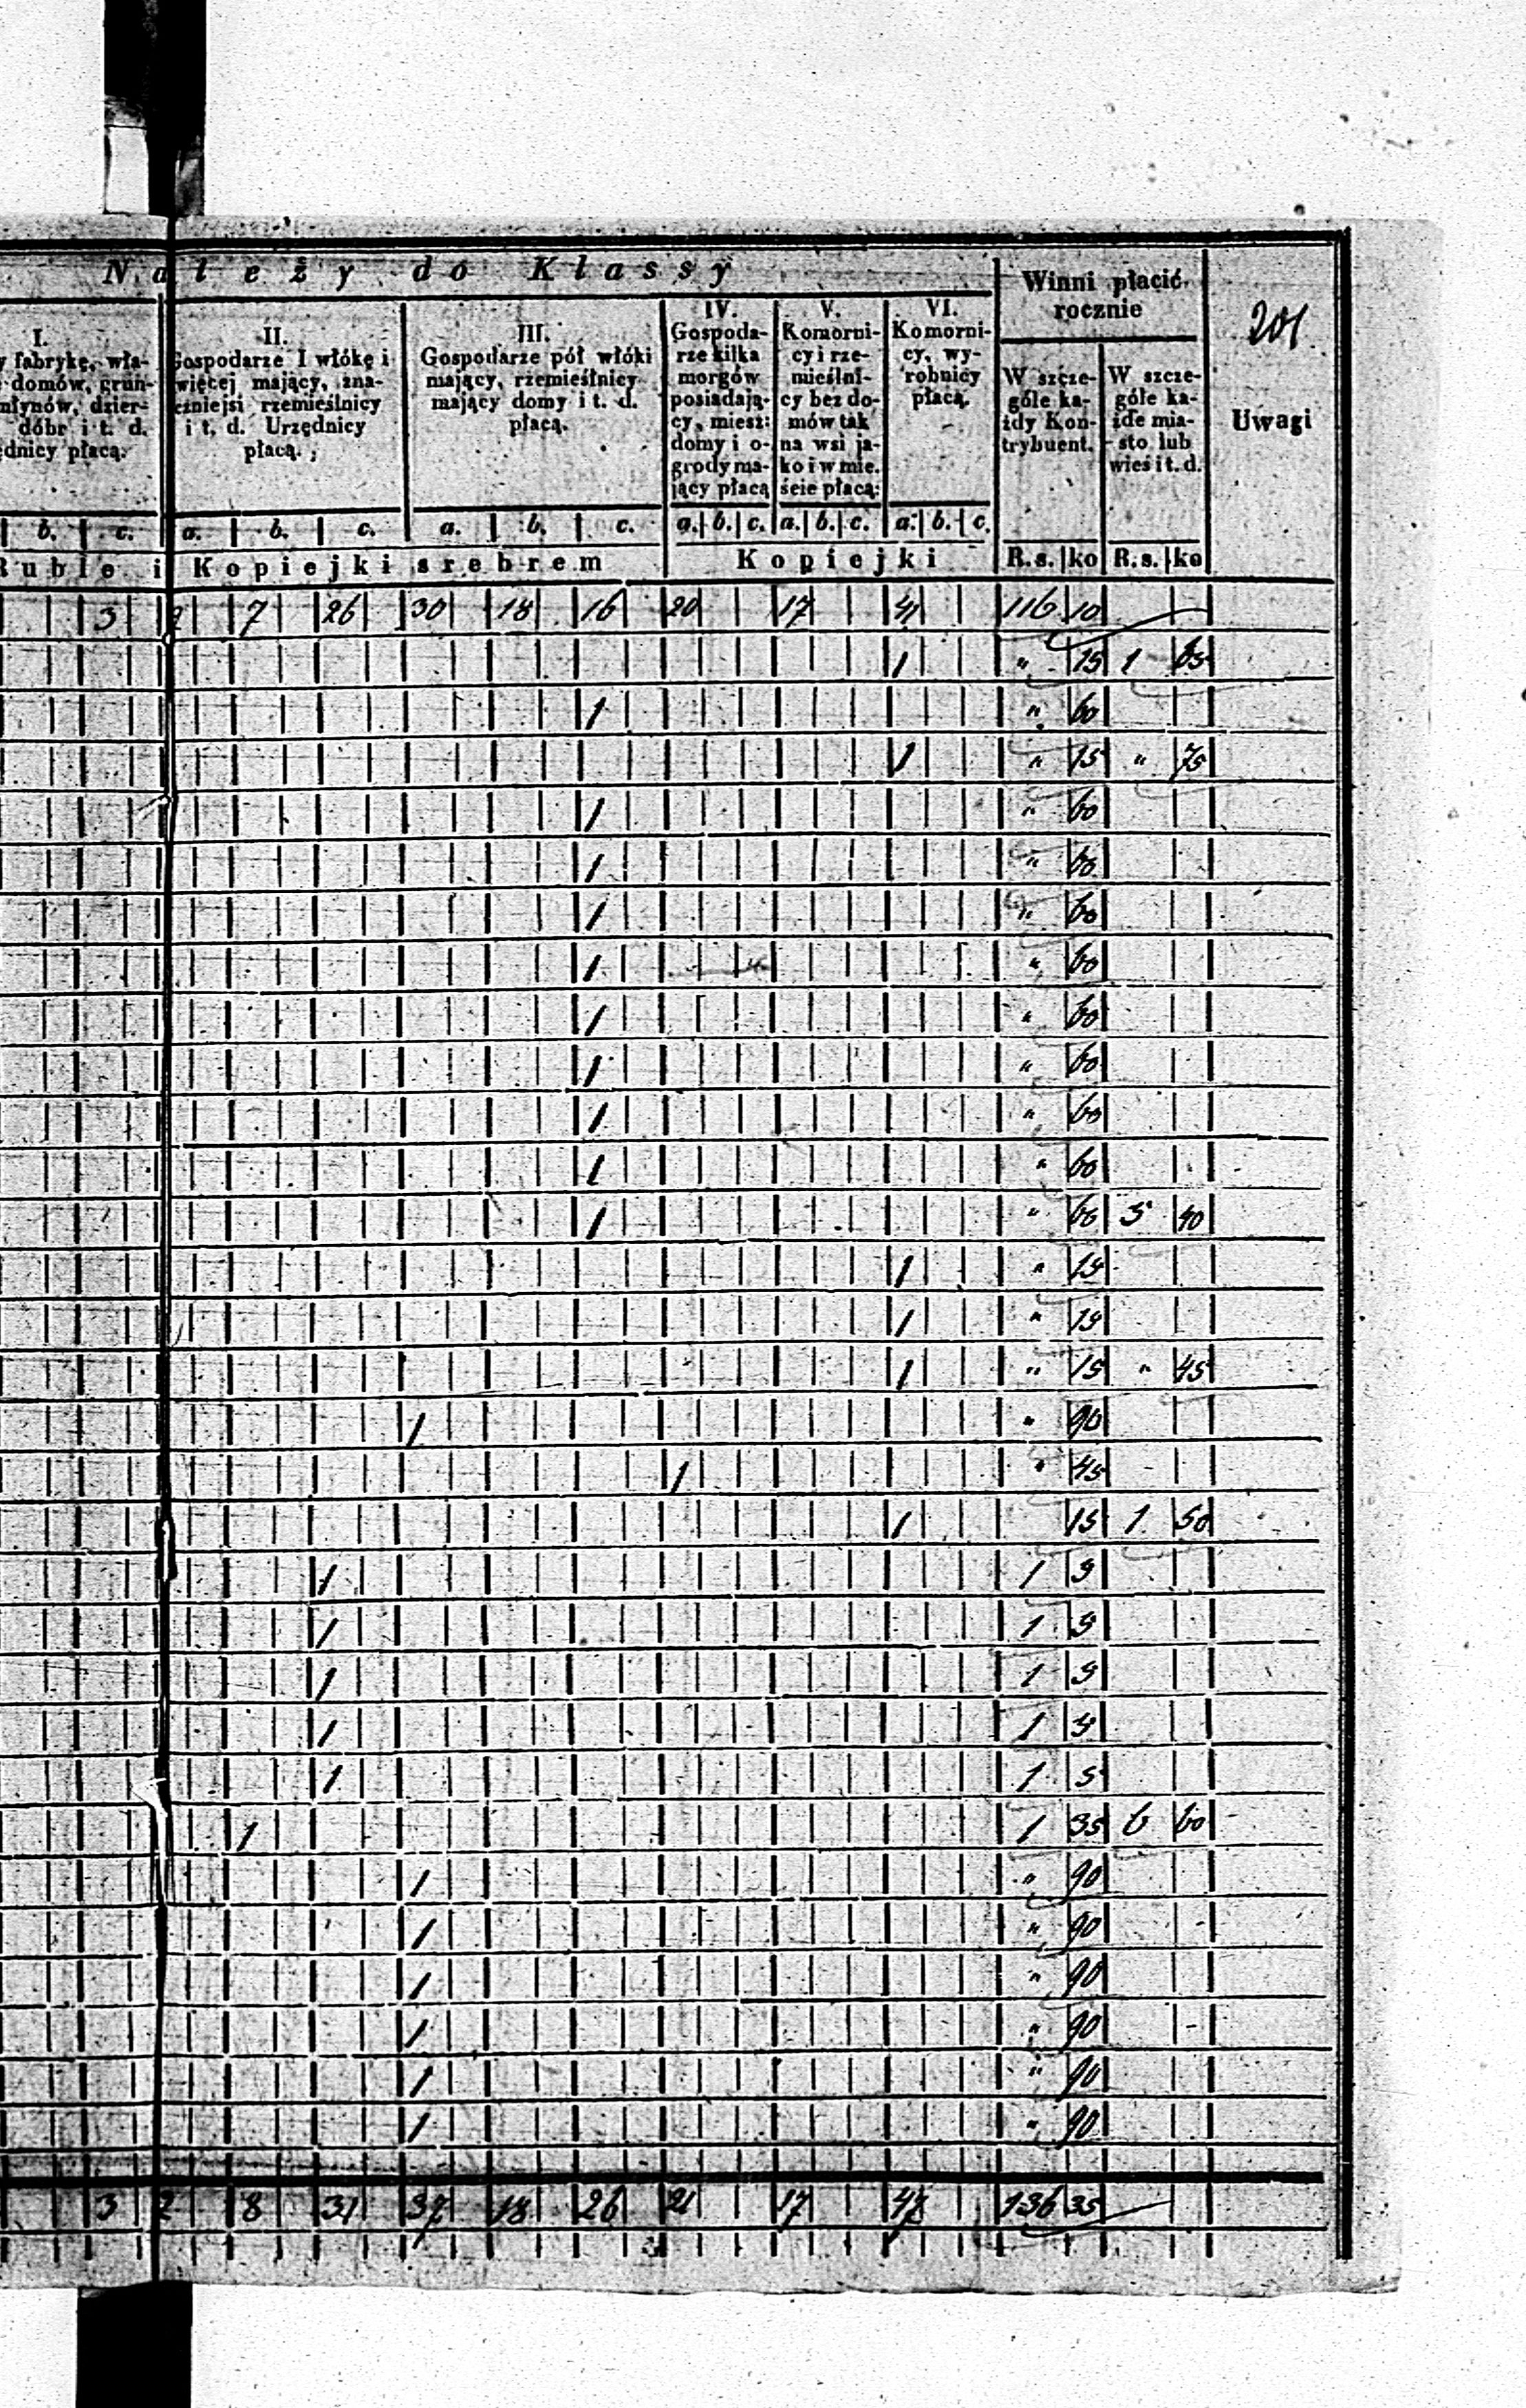 Należy do Klassy
Winni płacić rocznie
201
I.
y fabrykę, wła-
domów, grun-
młynów, dzier-
dóbr i t. d.
ędnicy płacą:
II.
Gospodarze I włókę i
więcej mający, zna-
czniejsi rzemieślnicy
i t. d. Urzędnicy
płacą:
III.
Gospodarze pół włóki
mający, rzemieślnicy
mający domy i t. d.
płacą.
IV.
Gospoda-
rze kilka
morgów
posiadają-
cy, miesz:
domy i o-
grody ma-
jący płacą
V.
Komorni-
cy i rze-
mieślni-
cy bez do-
mów tak
na wsi ja-
ko i w mie-
ście płacą:
VI.
Komorni-
cy, wy-
robnicy
płacą.
W szcze-
góle ka-
żdy Kon-
trybuent.
W szcze-
góle ka-
żde mia-
sto lub
wieś i t. d.
Uwagi
b. c. a. b. c. a. b. c. a. b. c. a. b. c. a. b. c.
Ruble i Kopiejki srebrem Kopiejki R.s. ko R.s. ko
3 2 7 26 30 18 16 20 17 41 116 10
1 " 15 1 65
1 " 60
1 " 15 " 75
1 " 60
1 " 60
1 " 60
1 " 60
1 " 60
1 " 60
1 " 60
1 " 60
1 " 60 5 40
1 " 15
1 " 15
1 " 15 " 45
1 " 90
1 " 45
1 15 1 50
1 1 5
1 1 5
1 1 5
1 1 5
1 1 5
1 1 35 6 60
1 " 90
1 " 90
1 " 90
1 " 90
1 " 90
1 " 90
3 2 8 31 37 18 26 21 17 47 136 35